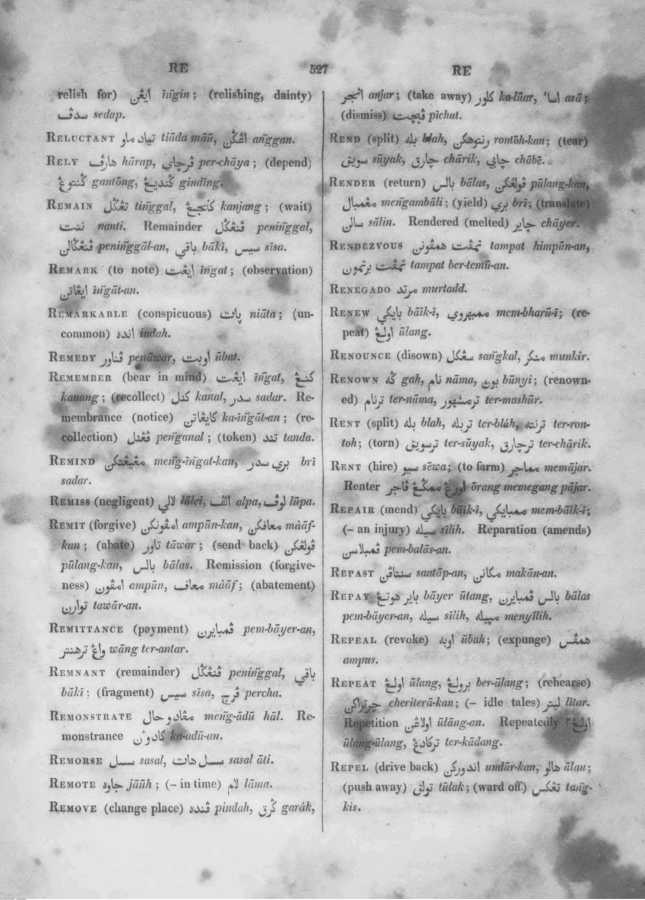 RE 527 RE
relish for) ايڠن ĭñgin; (relishing, dainty)
سدڤ sedap.
RELUCTANT تياد ماو tiāda māū, اڠݢن añggan.
RELY هارڤ hārap, ڤرچاي per-chāya; (depend)
ݢنتوڠ gantōng, ݢنديڠ ginding.
REMAIN تڠݢل tiñggal, كنجڠ kanjang; (wait)
ننت nanti. Remainder ڤنڠݢل peniñggal,
ڤنڠݢالن peniñggāl-an, باقي bāki, سيس sisa.
REMARK (to note) ايڠت iñgat; (observation)
ايڠاتن iñgāt-an.
REMARKABLE (conspicuous) ڽات niāta; (un-
common) انده indah.
REMEDY ڤناور penāwar, اوبت ūbat.
REMEMBER (bear in mind) ايڠت ĭñgat, كنڠ
kanang; (recollect) كنل kanal, سدر sadar. Re-
membrance (notice) كايڠاتن ka-iñgāt-an; (re-
collection) ڤڠنل peñganal; (token) تند tanda.
REMIND مڠيڠتكن meñg-iñgat-kan, بري سدر bri
sadar.
REMISS (negligent) لالي lālei, الڤ alpa, لوڤ lūpa.
REMIT (forgive) امڤونكن ampūn-kan, معافكن māāf-
kan; (abate) تاور tāwar; (send back) ڤولڠكن
pūlang-kan, بالس bālas. Remission (forgive-
ness) امڤون ampūn, معاف māāf; (abatement)
توارن tawār-an.
REMITTANCE (payment) ڤمبايرن pem-bāyer-an,
واڠ ترهنتر wāng ter-antar.
REMNANT (remainder) ڤنڠݢل peniñggal, باقي
bāki; (fragment) سيس sisa, ڤرچ percha.
REMONSTRATE مڠادو حال meñg-ādū hāl. Re-
monstrance كادون ka-adū-an.
REMORSE سسل sasal, سسل هات sasal āti.
REMOTE جاوه jāūh; (– in time) لام lāma.
REMOVE (change place) ڤنده pindah, ݢرق garák,
انجر anjar; (take away) كلور ka-lūar, اسا asā;
(dismiss) ڤيچت pichat.
REND (split) بله blah, رنتوهكن rontōh-kan; (tear)
سويق sūyak, چارق chārik, چابي chābē.
RENDER (return) بالس bālas, ڤولڠكن pūlang-kan,
مڠمبالي meñgambāli; (yield) بري bri; (translate)
سالن sālin. Rendered (melted) چاير chāyer.
RENDEZVOUS تمڤت همڤونن tampat himpūn-an,
تمڤت برتمون tampat ber-temū-an.
RENEGADO مرتد murtadd.
RENEW بايكي bāik-i, ممبهروي mem-bharū-i; (re-
peat) اولڠ ūlang.
RENOUNCE (disown) سڠكل sañgkal, منكر munkir.
RENOWN ݢه gah, نام nāma, بون būnyi; (renown-
ed) ترنام ter-nāma, ترمشهور ter-mashūr.
RENT (split) بله blah, تربله ter-blāh, ترنته ter-ron-
toh; (torn) ترسويق ter-sūyak, ترچارق ter-chārik.
RENT (hire) سيو sēwa; (to farm) مماجر memājar.
Renter اورڠ ممݢڠ ڤاجر ōrang memegang pājar.
REPAIR (mend) بايكي bāik-i, ممبايكي mem-bāik-i;
(– an injury) سيله sīlih. Reparation (amends)
ڤمبلاسن pem-balās-an.
REPAST سنتاڤن santāp-an, مكانن makān-an.
REPAY باير هوتڠ bāyer ūtang, بالس ڤمبايرن bālas
pem-bāyer-an, سيله sīlih, مڽيله menyīlih.
REPEAL (revoke) اوبه ūbah; (expunge) همڤس
ampus.
REPEAT اولڠ ūlang, برولڠ ber-ūlang; (rehearse)
چرتراكن cheriterā-kan; (– idle tales) ليتر lītar.
Repetition اولاڠن ūlāng-an. Repeatedly اولڠ٢
ūlang-ūlang, تركادڠ ter-kādang.
REPEL (drive back) اندوركن undūr-kan, هالو ālau;
(push away) تولق tūlak; (ward off) تڠكس tañg-
kis.